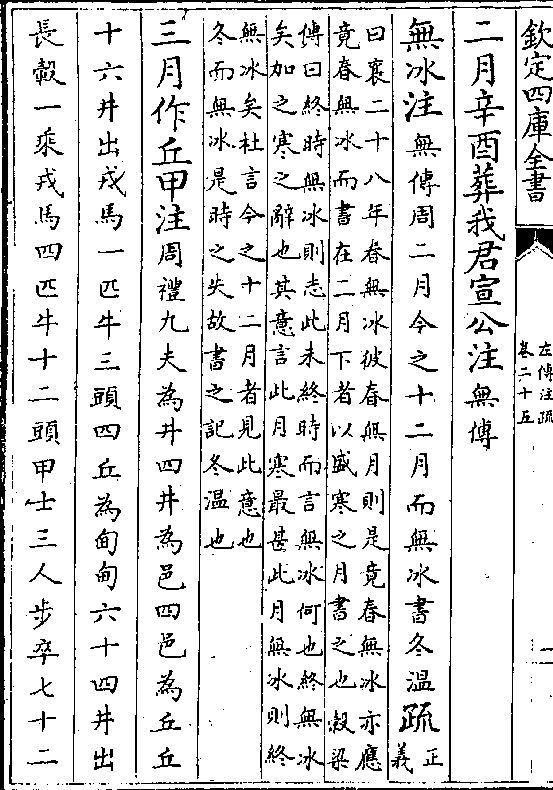 欽定四庫全書
左傳注疏
卷二十五
二月辛酉葬我君宣公注無傳
無冰注無傳周二月今之十二月而無冰書冬溫疏正義
曰襄二十八年春無冰彼春無月則是竟春無冰亦應
竟春無冰而書在二月下者以盛寒之月書之也穀梁
傳曰終時無冰則志此未終時而言無冰何也終無冰
矣加之寒之辭也其意言此月寒最甚此月無冰則終
無冰矣杜言今之十二月者見此意也
冬而無冰是時之失故書之記冬溫也
三月作丘甲注周禮九夫為井四井為邑四邑為丘丘
十六井出戎馬一匹牛三頭四丘為甸甸六十四井出
長轂一乘戎馬四匹牛十二頭甲士三人步卒七十二